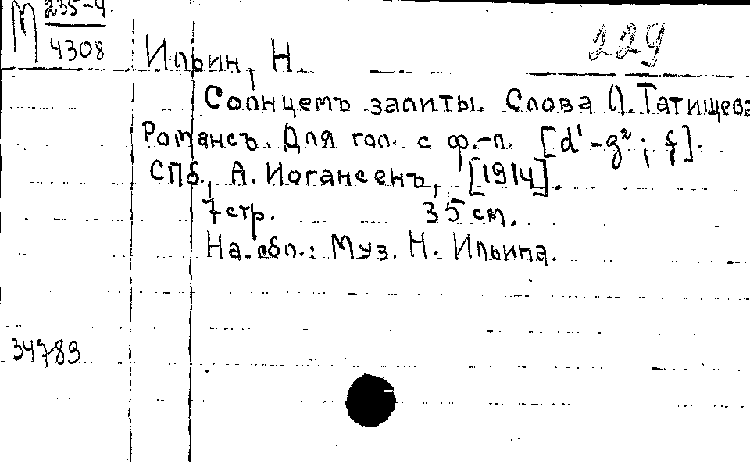 М 235-4
4308
229
Ильин, Н.
Солнцемъ залиты. Слова О. Татищева
Романсъ. Для гол. с ф.-п. [d¹-g²; f].
СПб., А. Иогансенъ, [1914].
7 стр. 35 см.
На обл.: Муз. Н. Ильина.
34783